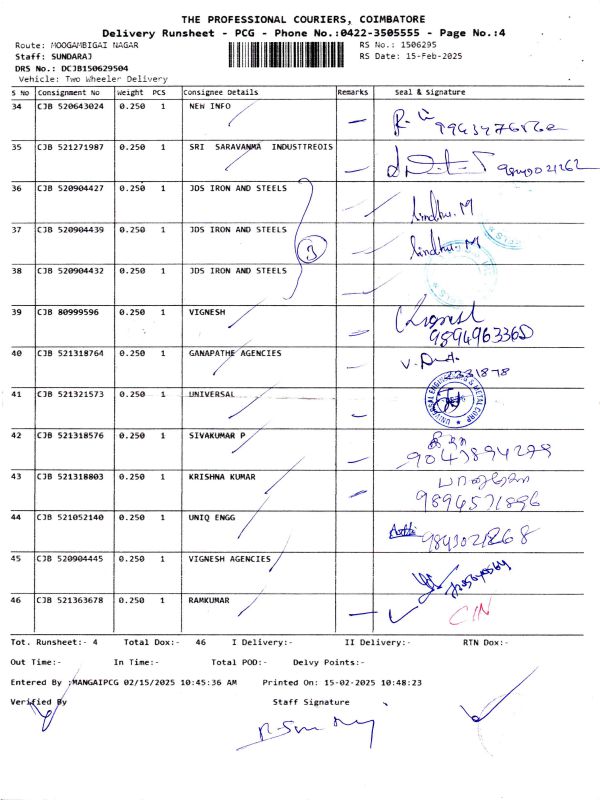 THE PROFESSIONAL COURIERS, COIMBATORE
Delivery Runsheet - PCG - Phone No.:0422-3505555 - Page No.:4
Route: MOOGAMBIGAI NAGAR RS No.: 1506295
Staff: SUNDARAJ RS Date: 15-Feb-2025
DRS No.: DCJB150629504
Vehicle: Two Wheeler Delivery
S No Consignment No Weight PCS Consignee Details Remarks Seal & Signature
34 CJB 520643024 0.250 1 NEW INFO
35 CJB 521271987 0.250 1 SRI SARAVANMA INDUSTTREOIS
36 CJB 520904427 0.250 1 JDS IRON AND STEELS Sindhu. M
37 CJB 520904439 0.250 1 JDS IRON AND STEELS 3 Sindhu. M
38 CJB 520904432 0.250 1 JDS IRON AND STEELS
39 CJB 80999596 0.250 1 VIGNESH
9894963360
40 CJB 521318764 0.250 1 GANAPATHE AGENCIES
41 CJB 521321573 0.250 1 UNIVERSAL UNIVERSAL ENGINEERINGS & METAL CORP
42 CJB 521318576 0.250 1 SIVAKUMAR P
9043894279
43 CJB 521318803 0.250 1 KRISHNA KUMAR
9894571896
44 CJB 521052140 0.250 1 UNIQ ENGG
45 CJB 520904445 0.250 1 VIGNESH AGENCIES
46 CJB 521363678 0.250 1 RAMKUMAR CIN
Tot. Runsheet:- 4 Total Dox:- 46 I Delivery:- II Delivery:- RTN Dox:-
Out Time:- In Time:- Total POD:- Delvy Points:-
Entered By ;MANGAIPCG 02/15/2025 10:45:36 AM Printed On: 15-02-2025 10:48:23
Verified By Staff Signature